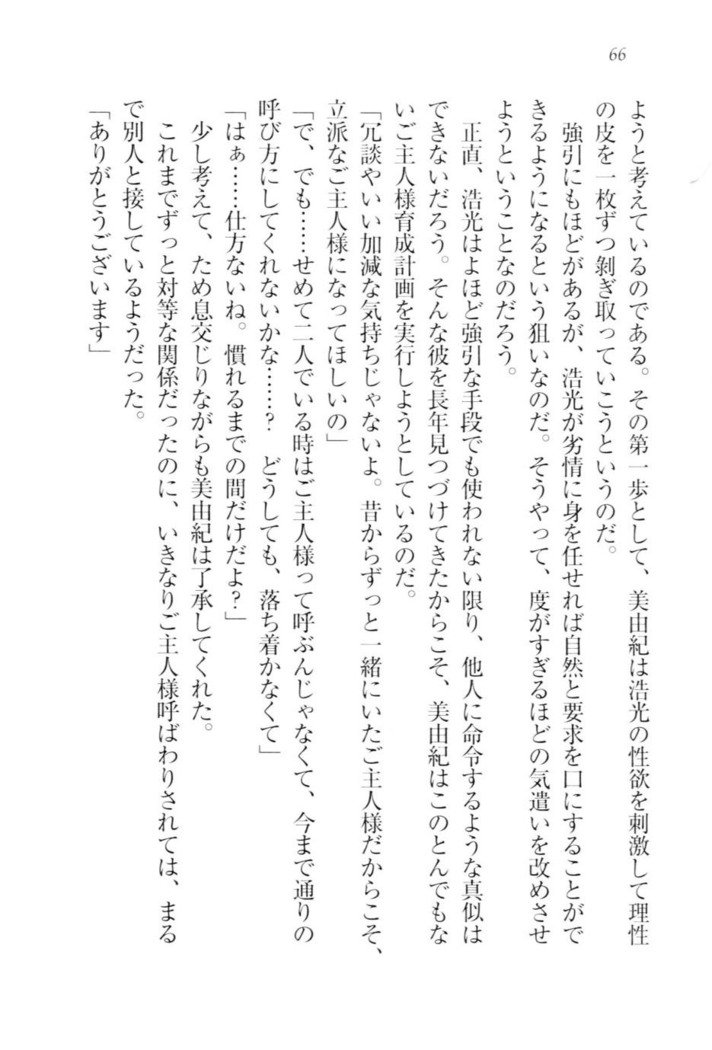 66
ようと考えているのである。その第一歩として、美由紀は浩光の性欲を刺激して理性
の皮を一枚ずつ剝ぎ取っていこうというのだ。
　強引にもほどがあるが、浩光が劣情に身を任せれば自然と要求を口にすることがで
きるようになるという狙いなのだ。そうやって、度がすぎるほどの気遣いを改めさせ
ようということなのだろう。
　正直、浩光はよほど強引な手段でも使われない限り、他人に命令するような真似は
できないだろう。そんな彼を長年見つづけてきたからこそ、美由紀はこのとんでもな
いご主人様育成計画を実行しようとしているのだ。
「冗談やいい加減な気持ちじゃないよ。昔からずっと一緒にいたご主人様だからこそ、
立派なご主人様になってほしいの」
「で、でも……せめて二人でいる時はご主人様って呼ぶんじゃなくて、今まで通りの
呼び方にしてくれないかな……？　どうしても、落ち着かなくて」
「はぁ……仕方ないね。慣れるまでの間だけだよ？」
　少し考えて、ため息交じりながらも美由紀は了承してくれた。
　これまでずっと対等な関係だったのに、いきなりご主人様呼ばわりされては、まる
で別人と接しているようだった。
「ありがとうございます」